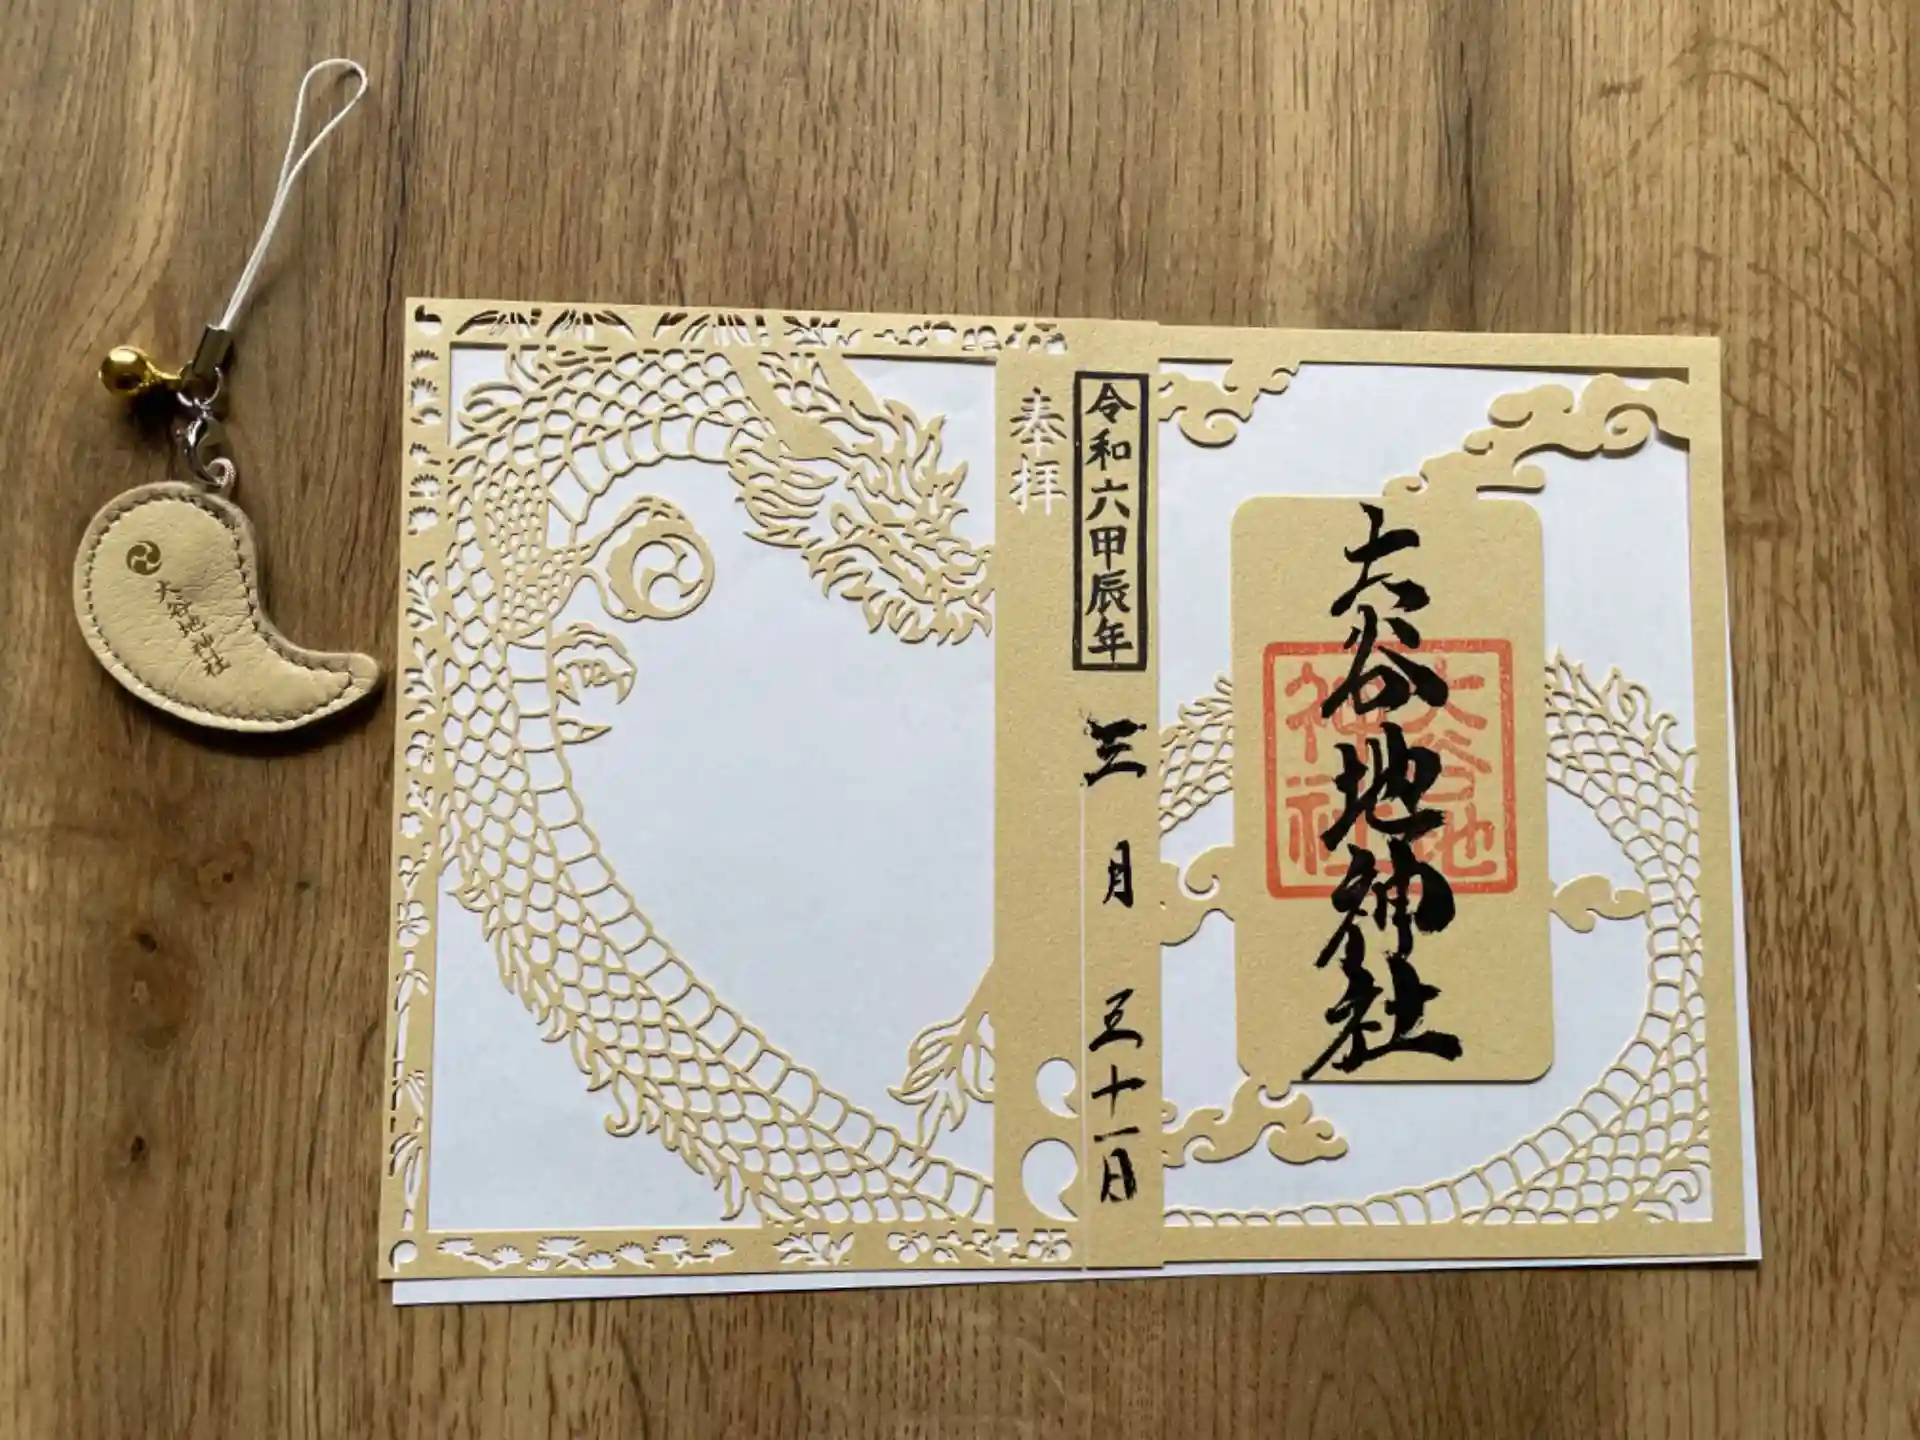 大谷地神社
大谷地
神社
令和六甲辰年
三月三十一日
奉拝
大谷地神社